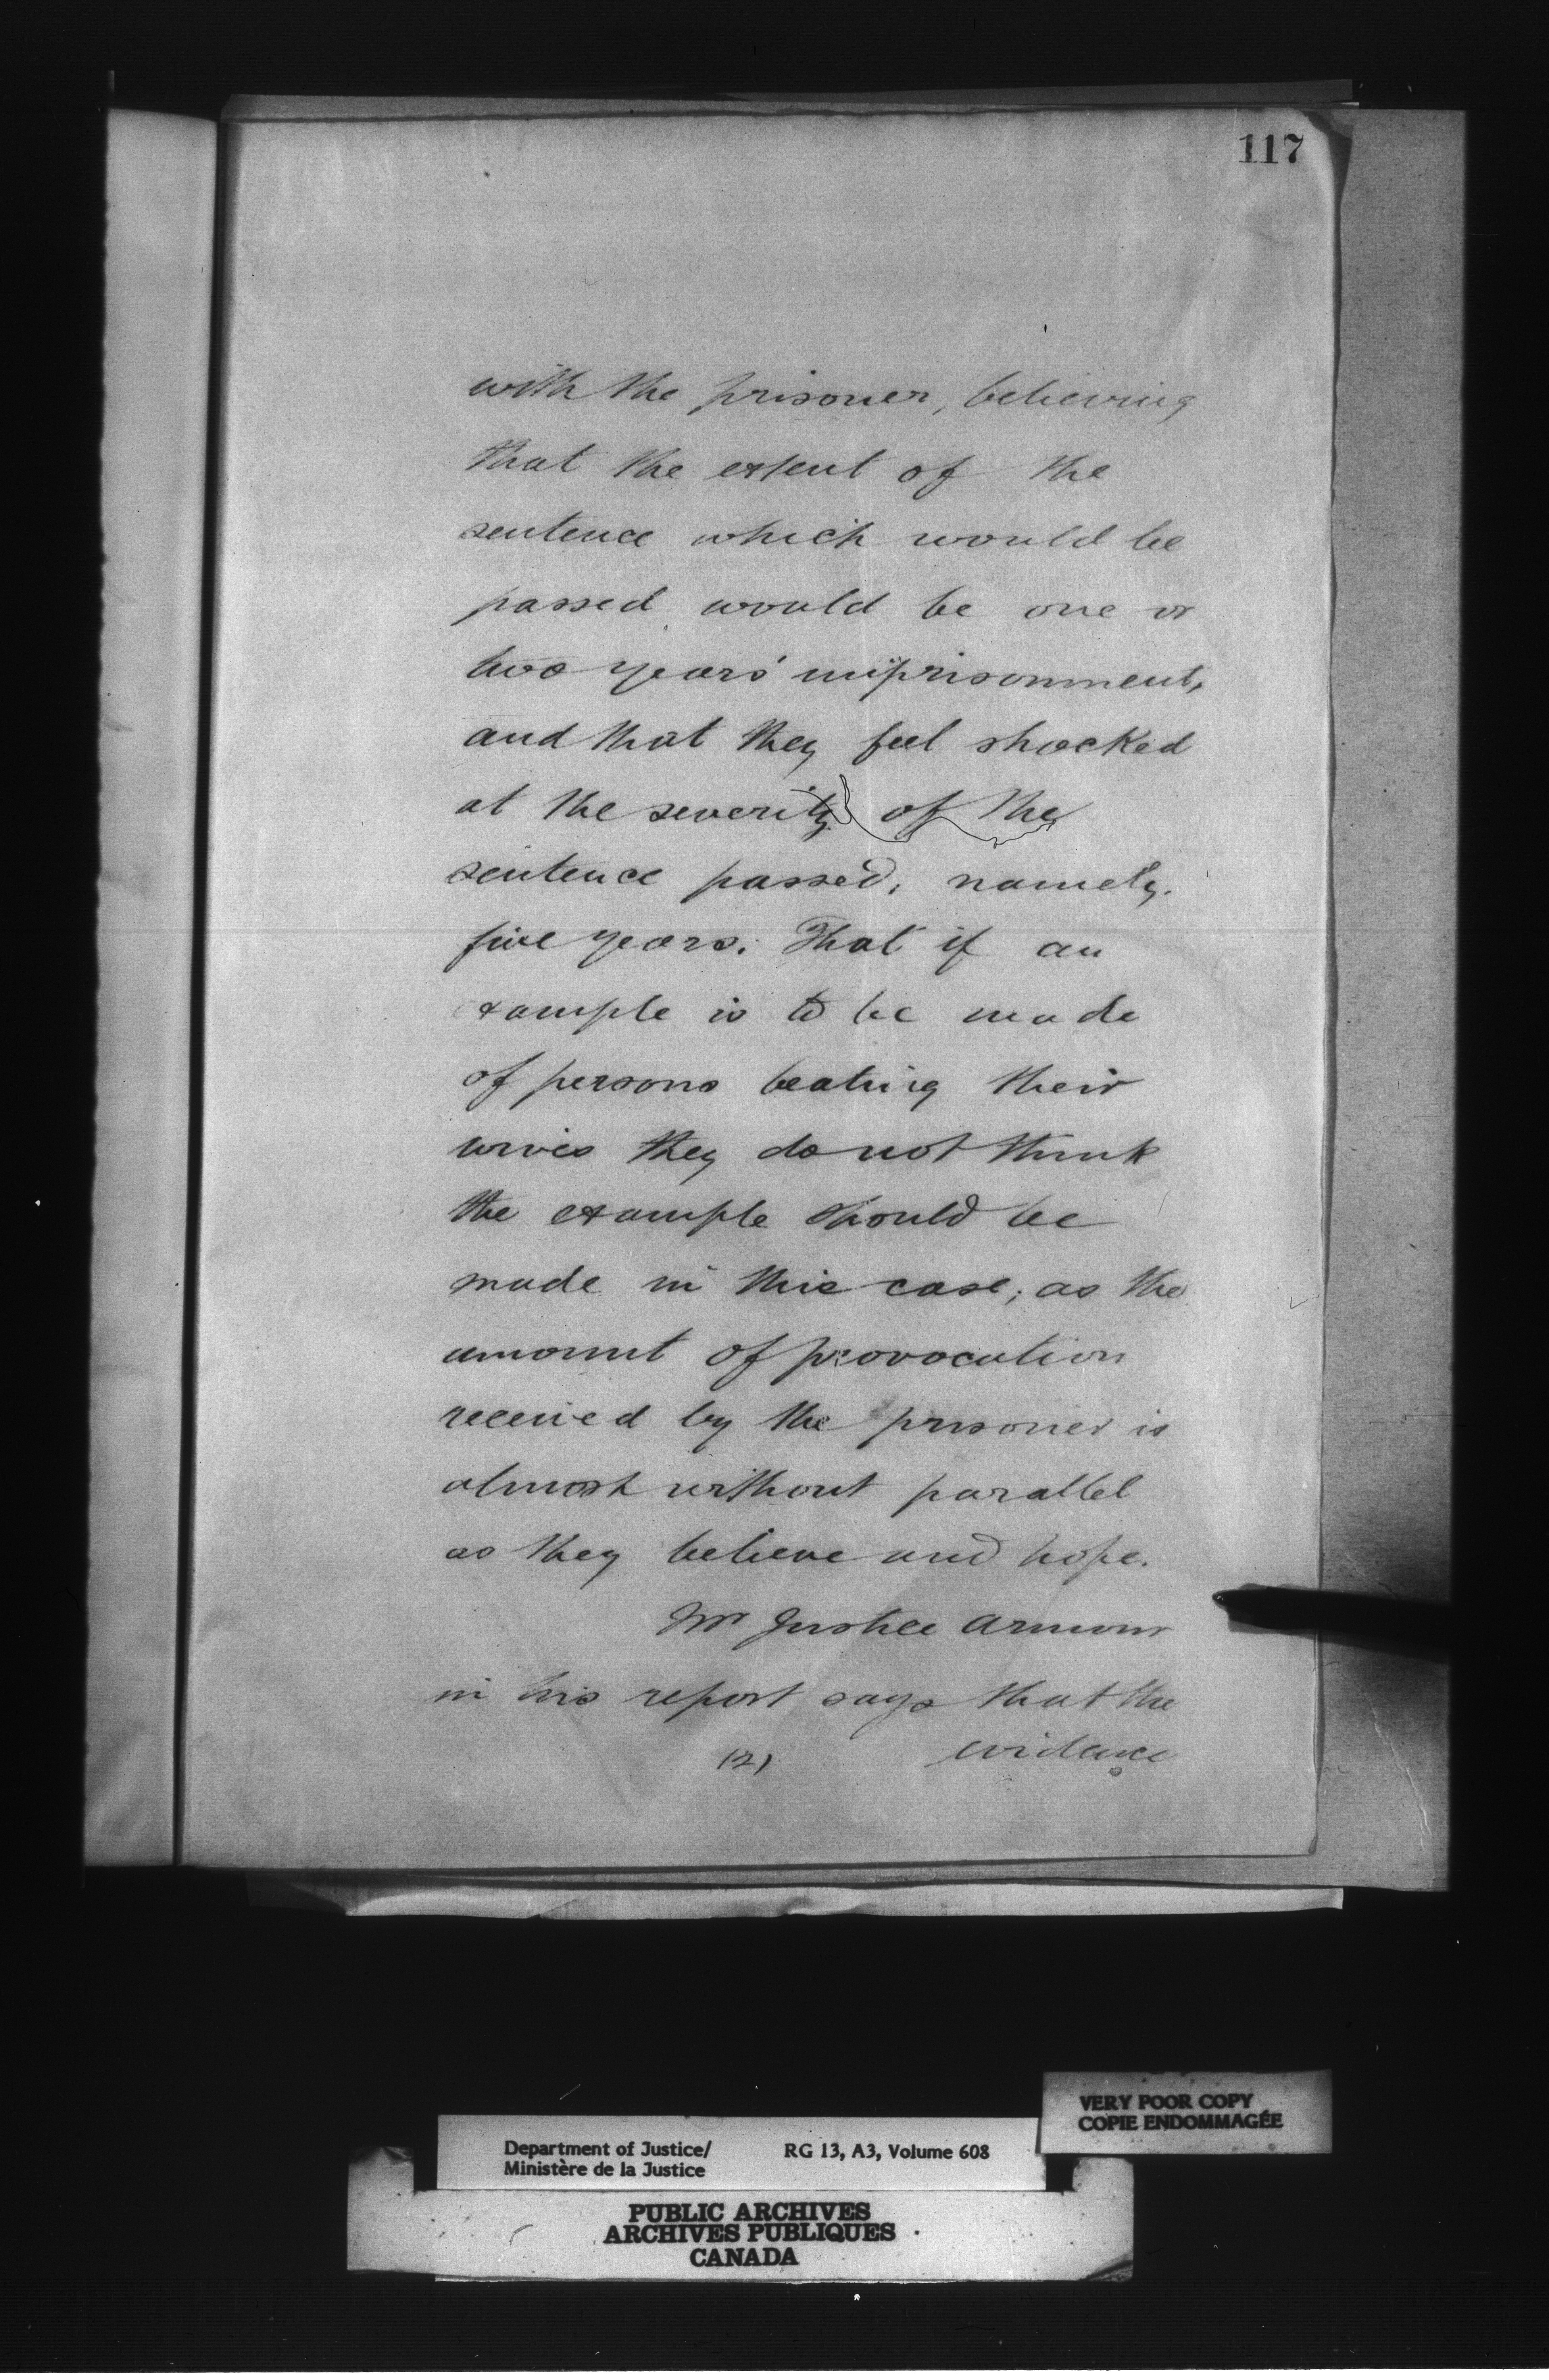 117
with the prisoner, believing
that the extent of the
sentence which would be
passed would be one or
two years' imprisonment,
and that they feel shocked
at the severity of the
sentence passed, namely.
five years. That if an
example is to be made
of persons beating their
wives they do not think
the example should be
made in this case; as the
amount of provocation
received by the prisoner is
almost without parallel
as they believe and hope.
Mr Justice Armour
in his report says that the
(2) evidence
VERY POOR COPY
COPIE ENDOMMAGÉE
Department of Justice/ RG 13, A3, Volume 608
Ministère de la Justice
PUBLIC ARCHIVES
ARCHIVES PUBLIQUES
CANADA